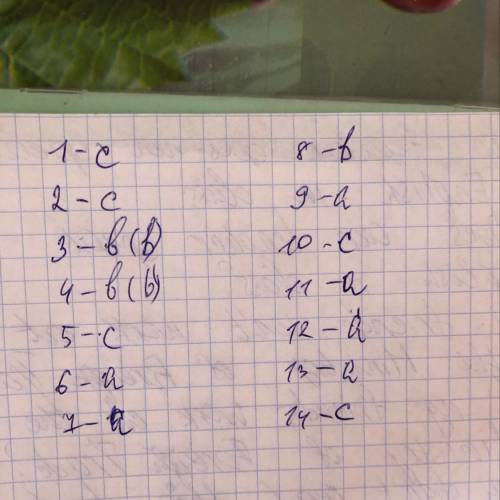 1 - c
2 - c
3 - в (b)
4 - в (b)
5 - c
6 - a
7 - a
8 - в
9 - a
10 - c
11 - a
12 - a
13 - a
14 - c